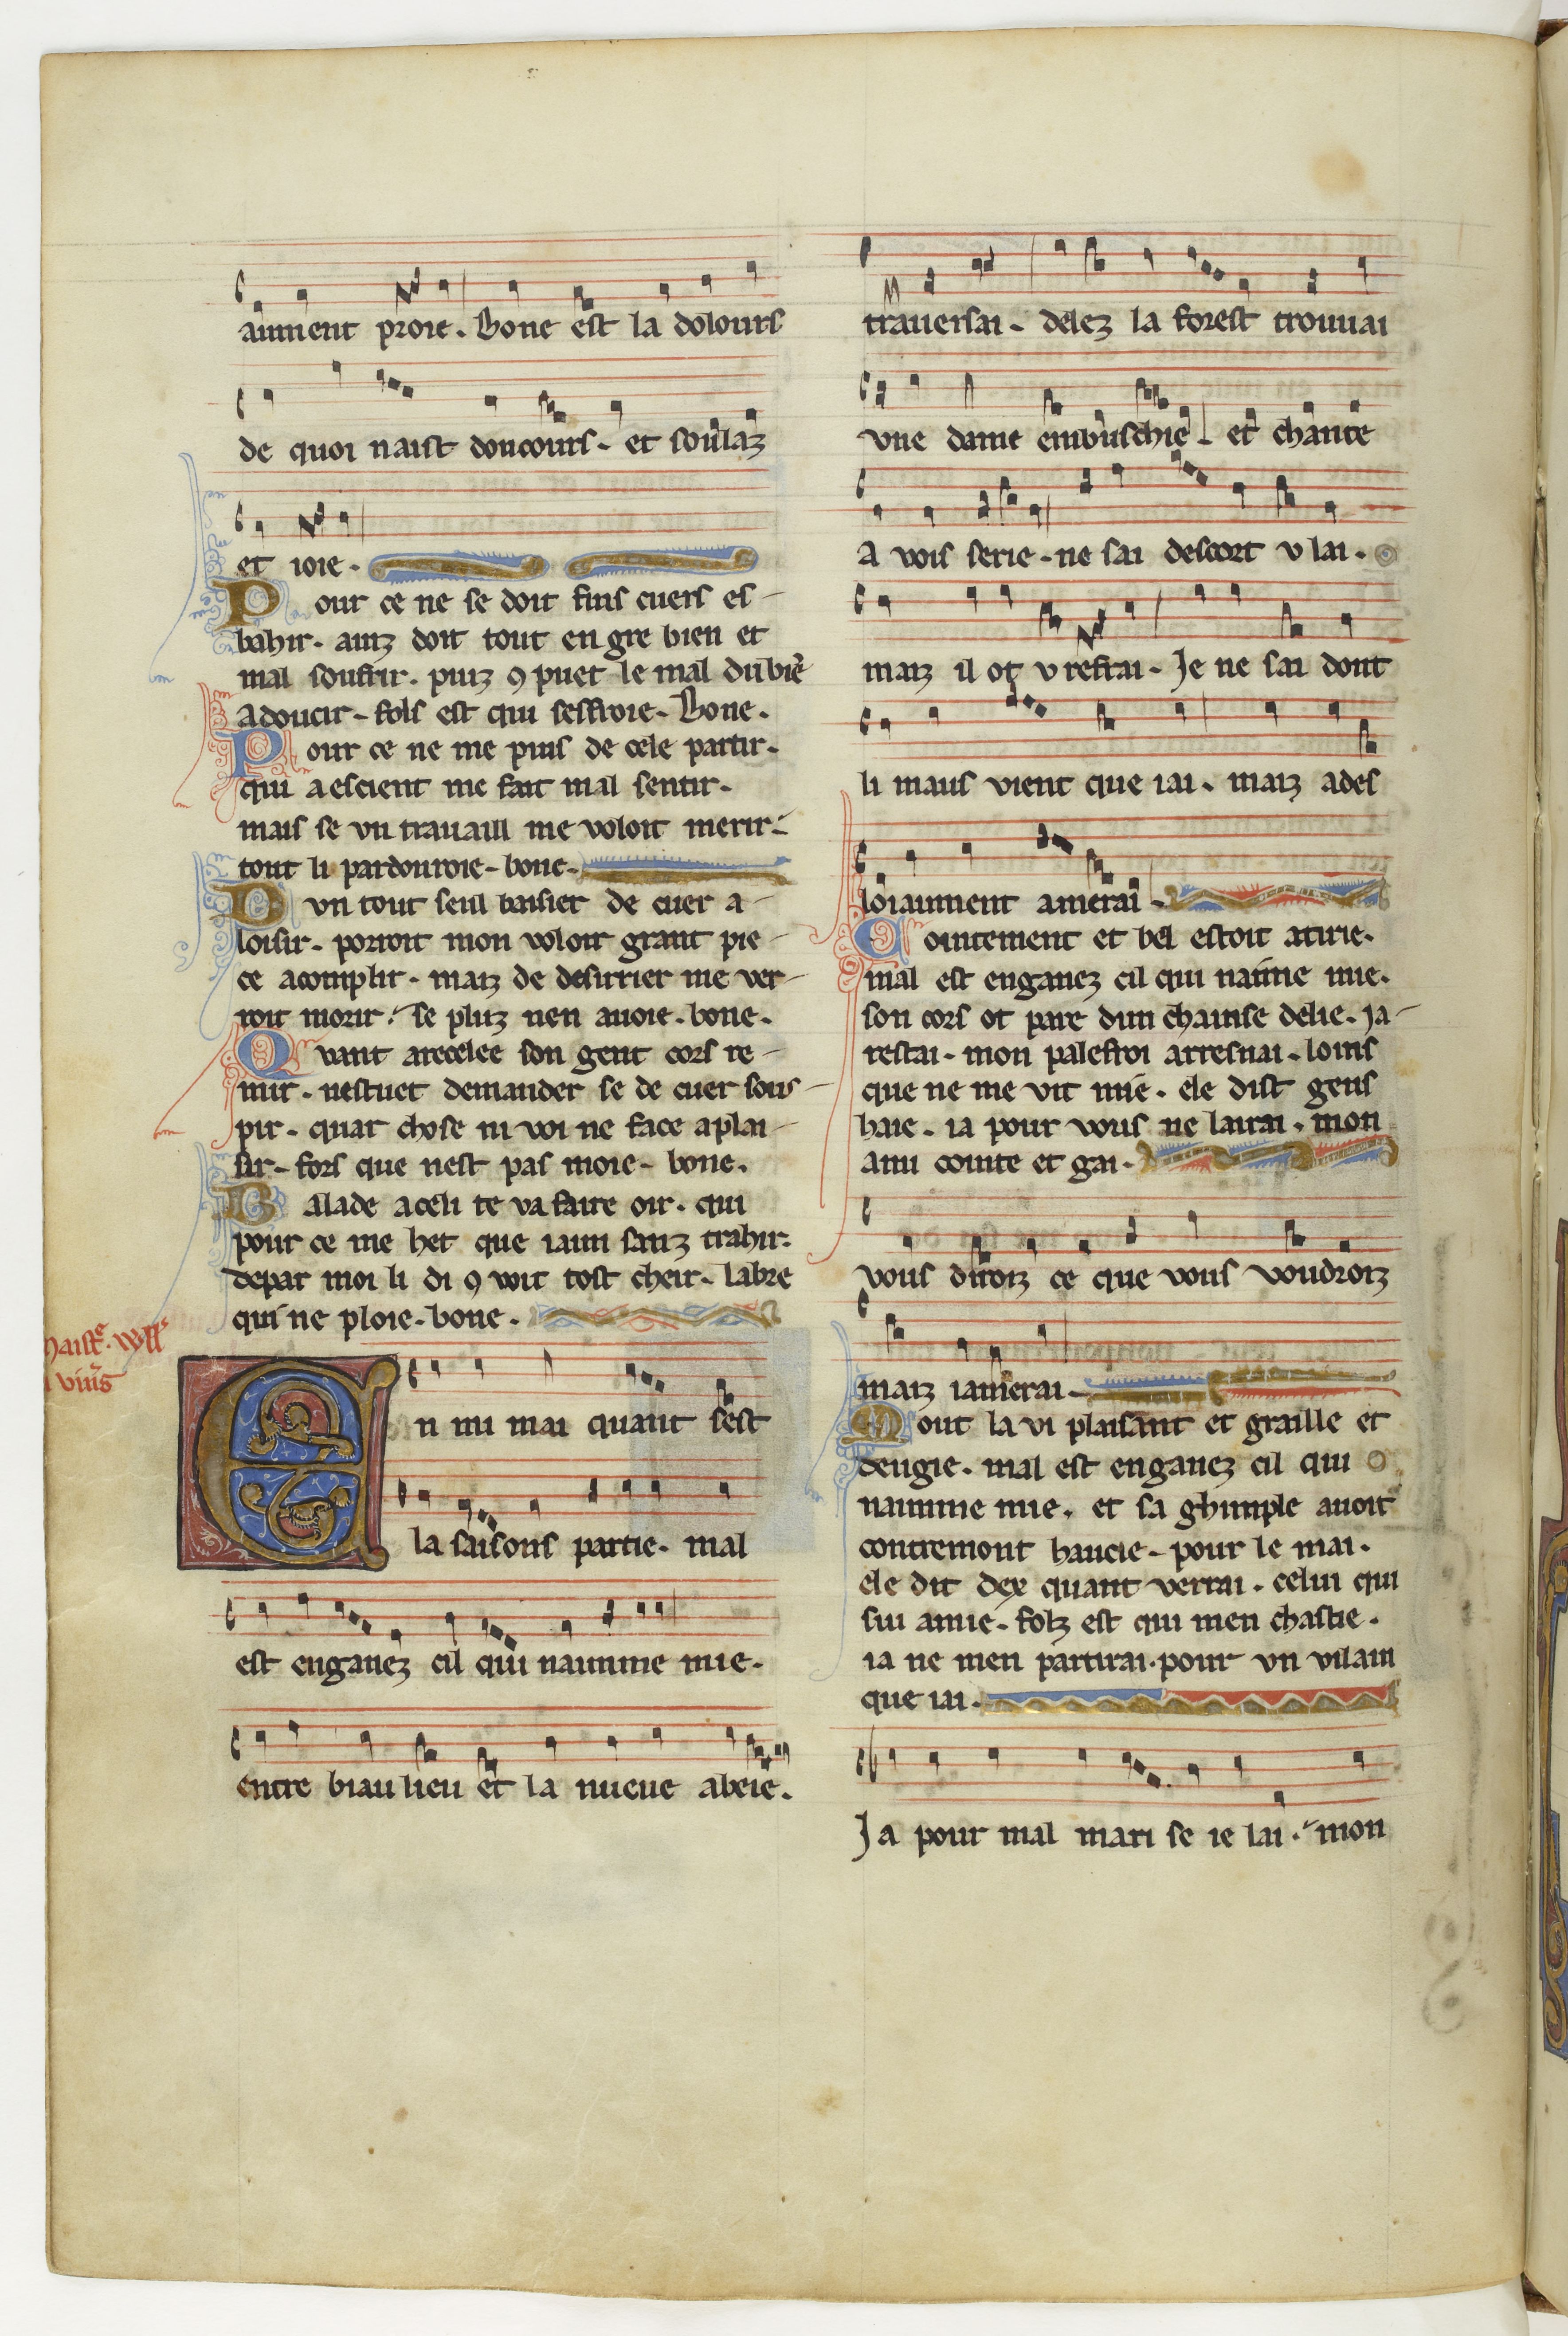 aiment proie. Bone est la dolours
de quoi naist doucours. et soulaz
et ioie.
Pour ce ne se doit fins cuers es
bahir. ainz doit tout en gre bien et
mal souffrir. puiz ꝯ puet le mal du biē
adoucir. fols est qui sesfroie. Bone.
Pour ce ne me puis de cele partir.
qui a escient me fait mal sentir.
mais se vn trauaill me voloit merir.
tout li pardonroie. bone.
Dvn tout seul baisier de cuer a
loisir. porroit mon voloir grant pie
ce acomplir. maiz de desirrier me ver
roit morir. se pluz nen auoie. bone.
Qvant arecelee son gent cors re
mir. nestuet demander se de cuer sous
pir. quar chose ni voi ne face a plai
sir. fors que nest pas moie. bone.
Balade a celi te va faire oir. qui
pour ce me het que iaim sanz trahir.
depar moi li di ꝯ voit tost cheir. labre
qui ne ploie. bone.
En mi mai quant sest
la saisons partie. mal
est enganez cil qui naimme mie.
entre biaulieu et la nueue abeie.
trauersai. delez la forest trouuai
vne dame embuschie. et chante
a vois serie. ne sai descort v lai.
maiz il ot v refrai. Je ne sai dont
li maus vient que iai. maiz ades
loiaument amerai.
Cointement et bel estoit atirie.
mal est enganez cil qui naime mie.
son cors ot pare dun chainse delie. Ja
restai. mon palefroi arresnai. loins
que ne me vit mie. ele dist gens
haie. ia pour vous ne lairai. mon
ami cointe et gai.
vous diroiz ce que vous voudroiz
maiz iamerai.
Mout la vi plaisant et graille et
deugie. mal est enganez cil qui
naimme mie. et sa ghimple auoit
contremont haucie. pour le mai.
ele dit dex quant verrai. celui qui
sui amie. folz est qui men chastie.
ia ne men partirai. pour vn vilain
que iai.
Ja pour mal mari se ie lai. mon